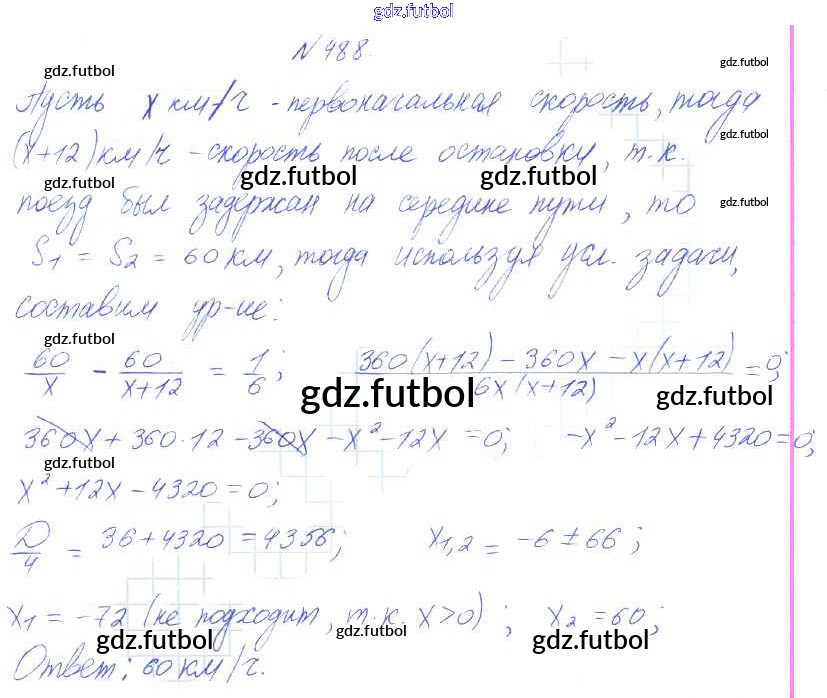 gdz.futbol
N 488.
gdz.futbol gdz.futbol
Пусть x км/ч - первоначальная скорость, тогда
gdz.futbol
(x+12) км/ч - скорость после остановки, т.к.
gdz.futbol gdz.futbol gdz.futbol
поезд был задержан на середине пути, то
gdz.futbol
S1 = S2 = 60 км, тогда используя усл. задачи,
составим ур-ие:
gdz.futbol
60/x - 60/(x+12) = 1/6; (360(x+12) - 360x - x(x+12))/(6x(x+12)) = 0;
gdz.futbol gdz.futbol
360x + 360·12 - 360x - x² - 12x = 0; -x² - 12x + 4320 = 0;
gdz.futbol
x² + 12x - 4320 = 0;
D/4 = 36 + 4320 = 4356; x1,2 = -6 ± 66;
gdz.futbol
x1 = -72 (не подходит, т.к. x>0); x2 = 60;
gdz.futbol gdz.futbol gdz.futbol
Ответ: 60 км/ч.